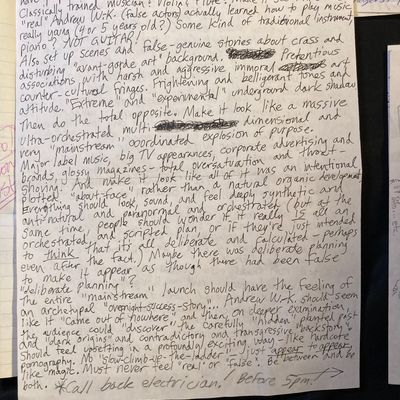 Classically trained musician? Violin? Flute?
"real" Andrew W.K. (false actor) actually learned how to play music
really young (4 or 5 years old?) Some kind of traditional instrument
piano? NOT GUITAR!
Also set up scenes and false-genuine stories about crass and
disturbing "avant-garde art" background. Pretentious
associations with harsh and aggressive immoral art
counter-cultural fringes. Frightening and belligerant tones and
attitude. "Extreme" and "experimental" underground dark shadow
Then do the total opposite. Make it look like a massive
ultra-orchestrated multi dimensional and
very "mainstream" coordinated explosion of purpose.
Major label music, big TV appearances, corporate advertising and
brands, glossy magazines - total oversatuation and throat
shoving. And make it feel like all of it was an intentional
plotted "about face", rather than a natural organic development
Everything should look, sound, and feel deeply synthetic and
anti-natural and paranormal and orchestrated (but at the
same time, people should wonder if it really IS all an
orchestrated and scripted plan, or if they're just intended
to think that it's all deliberate and calculated - perhaps
even after the fact.) Maybe there was deliberate planning
to make it appear as though there had been false
"deliberate planning"?
The entire "mainstream" launch should have the feeling of
an archetypal "overnight-success-story"... Andrew W.K. should seem
like it "came out of nowhere" and then, on deeper examination,
the audience could "discover" the carefully "hidden" planted past
and "dark origins" and contradictory and transgressive "backstory".
Should feel upsetting in a profoundly exciting way - like hardcore
pornography. No "slow-climb-up-the-ladder" - just appear to appear,
like "magic". Must never feel "real" or "false". Be between and be
both.
*Call back electrician! Before 5pm!